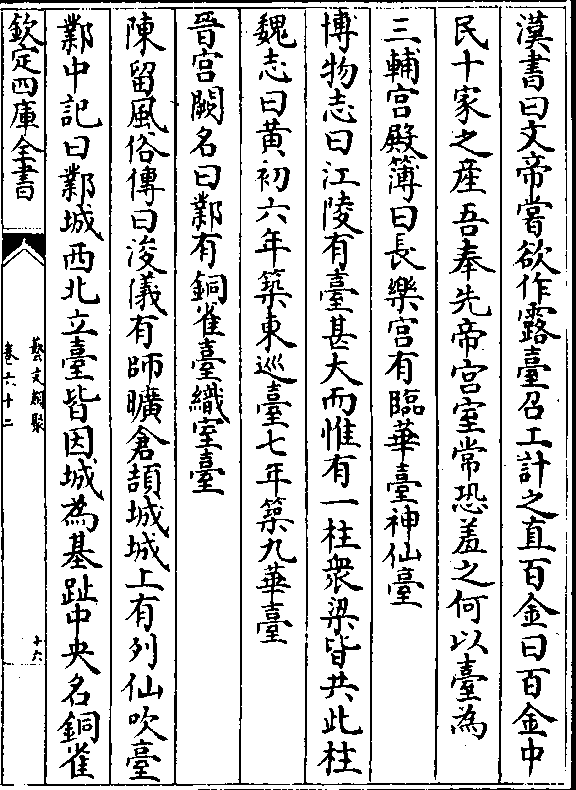 漢書曰文帝嘗欲作露臺召工計之直百金曰百金中
民十家之産吾奉先帝宫室常恐羞之何以臺為
三輔宫殿簿曰長樂宫有臨華臺神仙臺
博物志曰江陵有臺甚大而惟有一柱衆梁皆共此柱
魏志曰黃初六年築東巡臺七年築九華臺
晉宫闕名曰鄴有銅雀臺織室臺
陳留風俗傳曰浚儀有師曠倉頡城城上有列仙吹臺
鄴中記曰鄴城西北立臺皆因城為基趾中央名銅雀
欽定四庫全書
藝文類聚
卷六十二
十六